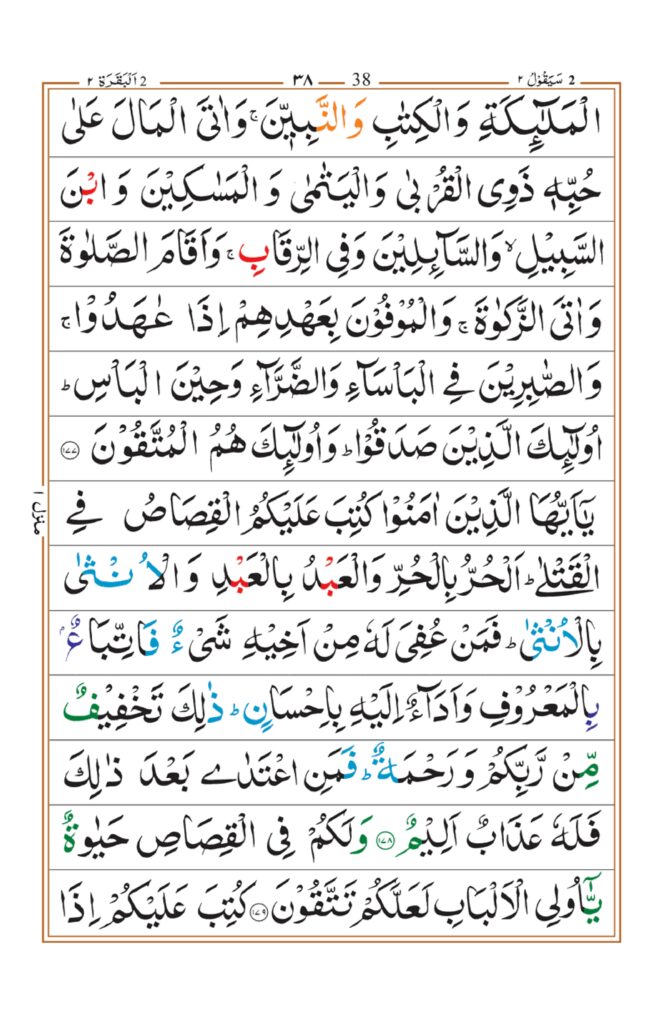 2 سَيَقُوْلُ ٢ 38 ٣٨ 2 اَلْبَقَرَة ٢
الْمَلٰٓئِكَةِ وَالْكِتٰبِ وَالنَّبِيّٖنَ ۚ وَاٰتَى الْمَالَ عَلٰى
حُبِّهٖ ذَوِى الْقُرْبٰى وَالْيَتٰمٰى وَ الْمَسٰكِيْنَ وَ ابْنَ
السَّبِيْلِ ۙ وَالسَّآئِلِيْنَ وَفِى الرِّقَابِ ۚ وَاَقَامَ الصَّلٰوةَ
وَ اٰتَى الزَّكٰوةَ ۚ وَالْمُوْفُوْنَ بِعَهْدِهِمْ اِذَا عٰهَدُوْا ۚ
وَ الصّٰبِرِيْنَ فِى الْبَاْسَآءِ وَالضَّرَّآءِ وَحِيْنَ الْبَاْسِ ؕ
اُولٰٓئِكَ الَّذِيْنَ صَدَقُوْا ؕ وَاُولٰٓئِكَ هُمُ الْمُتَّقُوْنَ ١٧٧
يٰٓاَيُّهَا الَّذِيْنَ اٰمَنُوْا كُتِبَ عَلَيْكُمُ الْقِصَاصُ فِى
الْقَتْلٰى ؕ اَلْحُرُّ بِالْحُرِّ وَالْعَبْدُ بِالْعَبْدِ وَ الْاُنْثٰى
بِالْاُنْثٰى ؕ فَمَنْ عُفِىَ لَهٗ مِنْ اَخِيْهِ شَىْءٌ فَاتِّبَاعٌۢ
بِالْمَعْرُوْفِ وَاَدَآءٌ اِلَيْهِ بِاِحْسَانٍ ؕ ذٰلِكَ تَخْفِيْفٌ
مِّنْ رَّبِّكُمْ وَ رَحْمَةٌ ؕ فَمَنِ اعْتَدٰى بَعْدَ ذٰلِكَ
فَلَهٗ عَذَابٌ اَلِيْمٌ ١٧٨ وَلَكُمْ فِى الْقِصَاصِ حَيٰوةٌ
يّٰٓاُولِى الْاَلْبَابِ لَعَلَّكُمْ تَتَّقُوْنَ ١٧٩ كُتِبَ عَلَيْكُمْ اِذَا
منزل ١